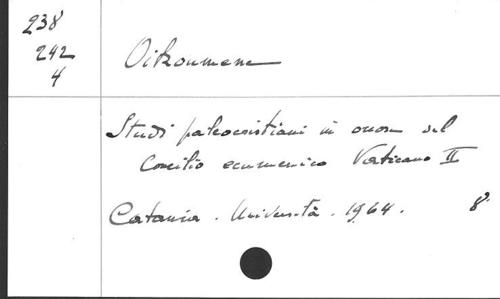 238
242
4
Oikoumene
Studi paleocristiani in onore del
Concilio ecumenico Vaticano II
Catania. Università. 1964. 8°